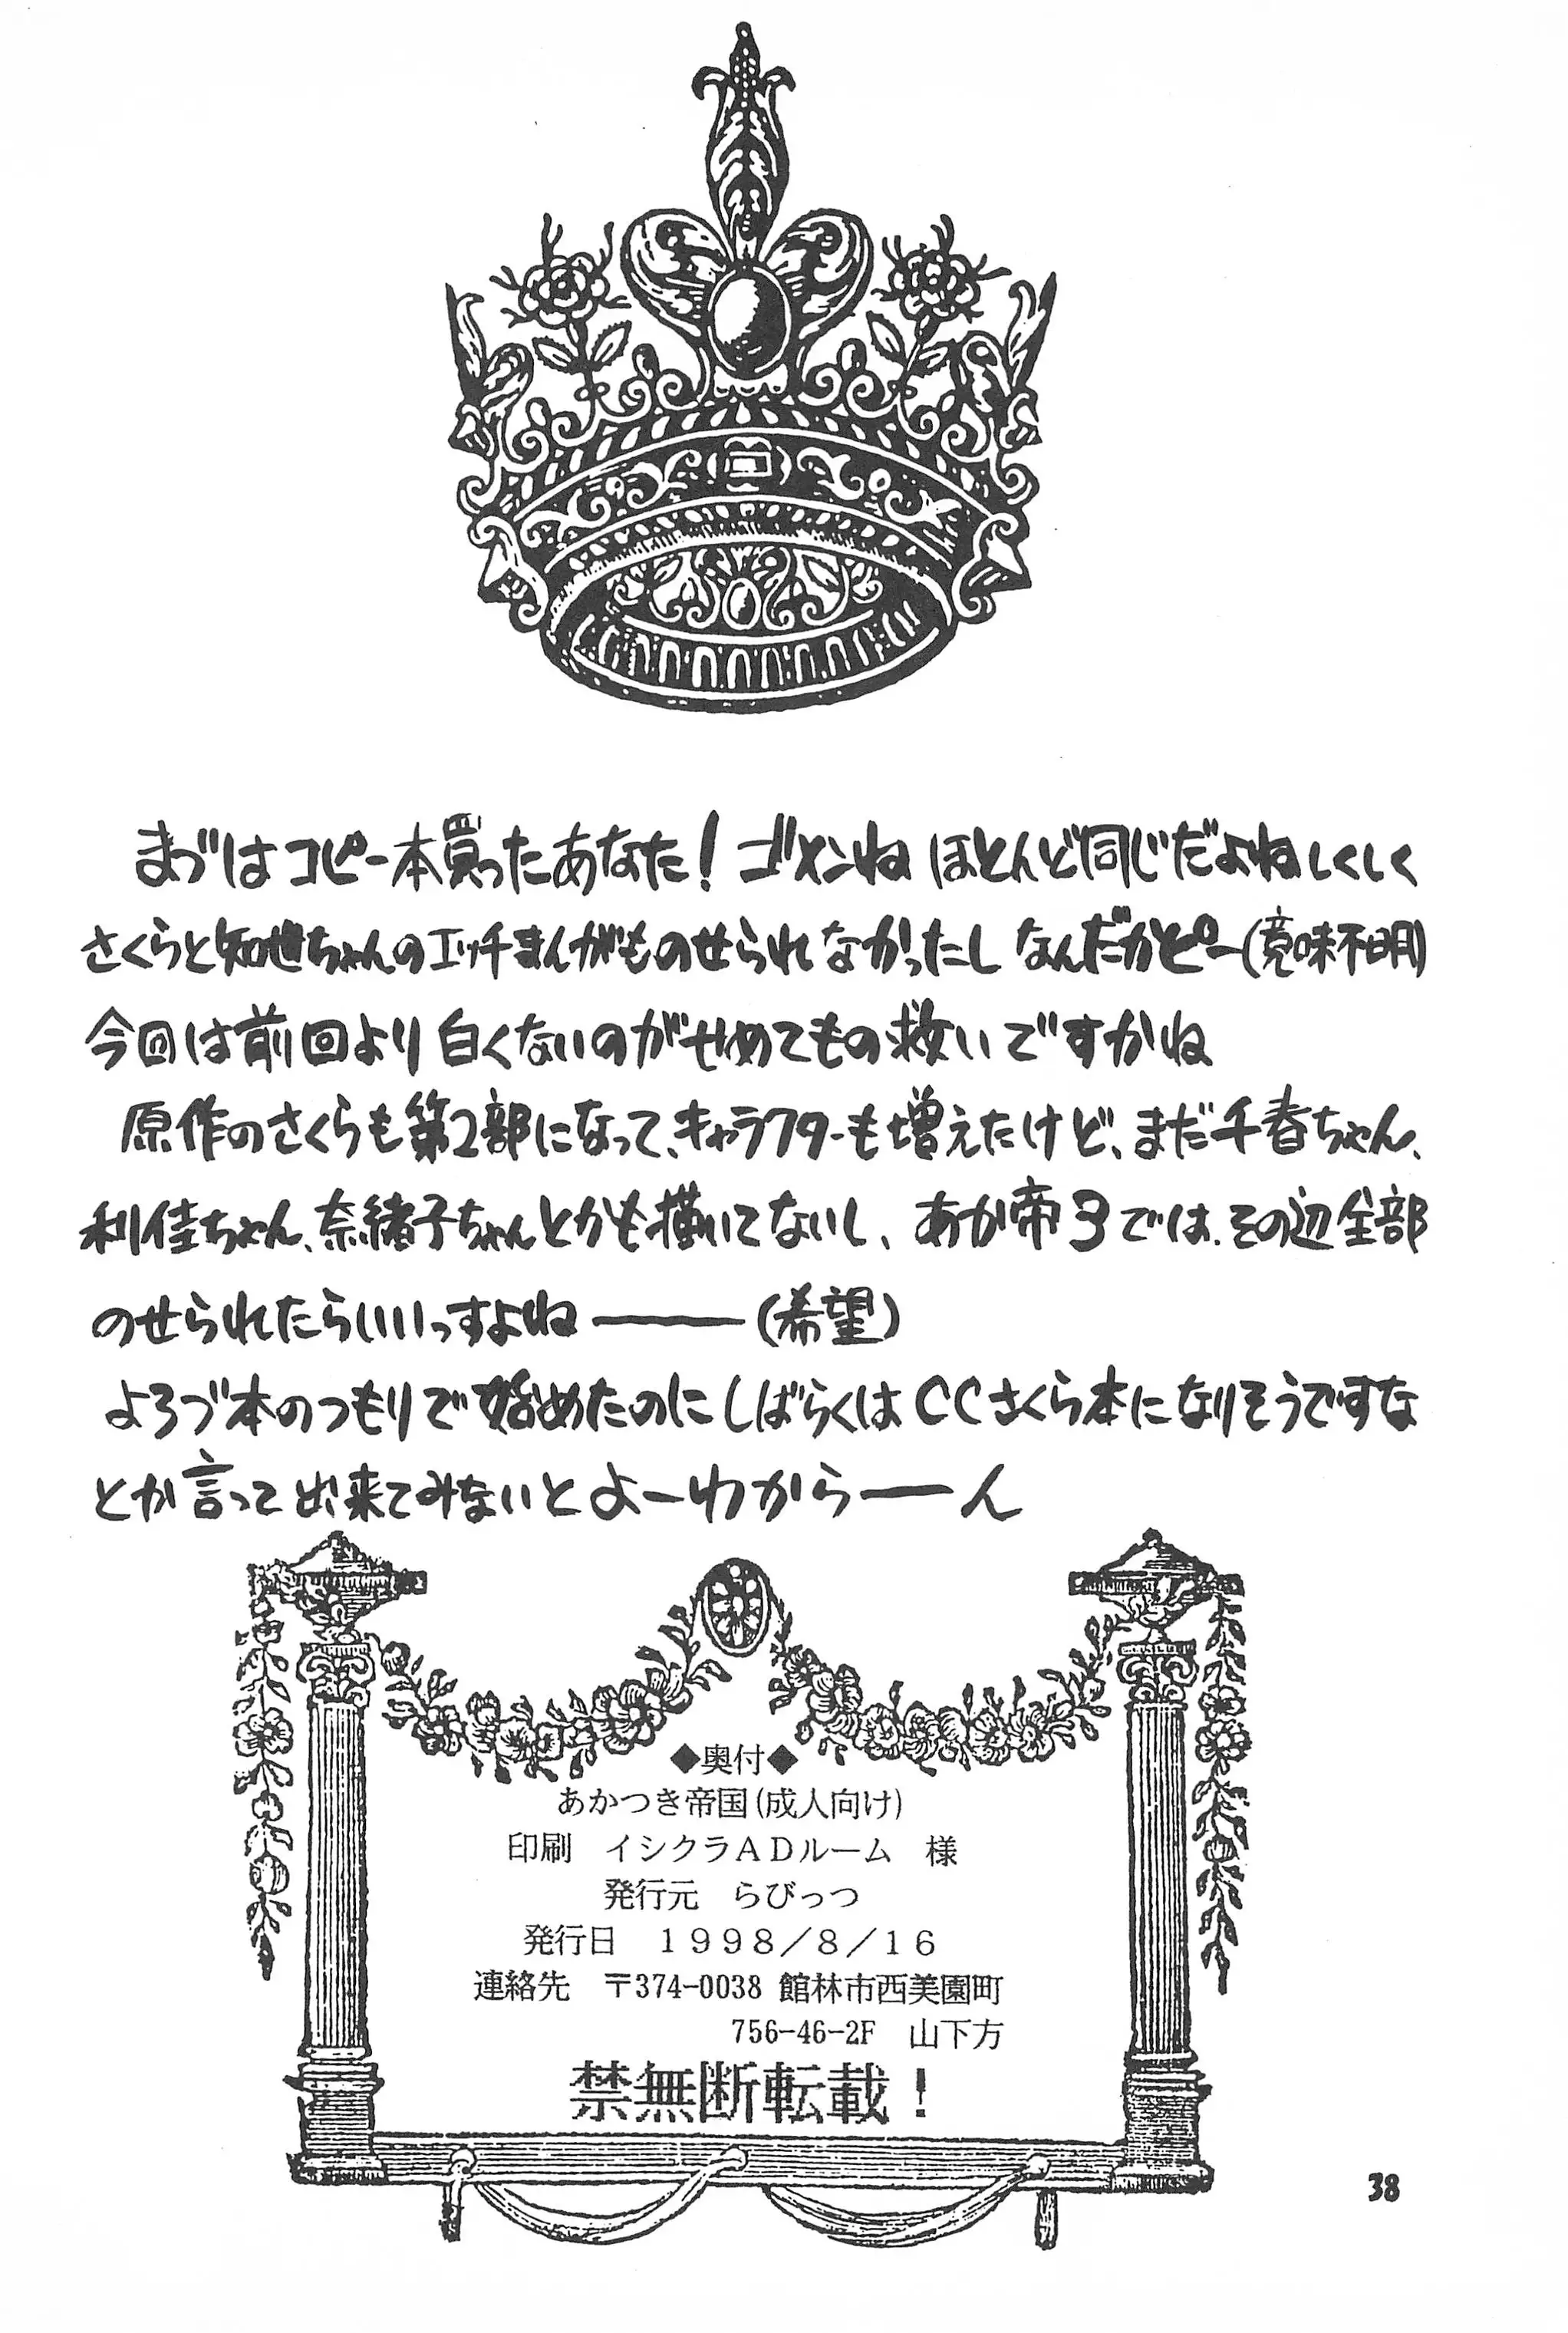 まづはコピー本買ったあなた!ゴメンね ほとんど同じだよねしくしく
さくらと知世ちゃんのエッチまんがものせられなかったし なんだかピー(意味不明)
今回は前回より白くないのがせめてもの救いですかね
原作のさくらも第2部になって、キャラクターも増えたけど、まだ千春ちゃん、
利佳ちゃん、奈緒子ちゃんとかも描いてないし、あか帝3では、その辺全部
のせられたらいいっすよねー(希望)
よろづ本のつもりで始めたのにしばらくはCCさくら本になりそうですな
とか言って出来てみないとよーわからーん
◆奥付◆
あかつき帝国(成人向け)
印刷 イシクラADルーム 様
発行元 らびっつ
発行日 1998/8/16
連絡先 〒374-0038 館林市西美園町
756-46-2F 山下方
禁無断転載!
38